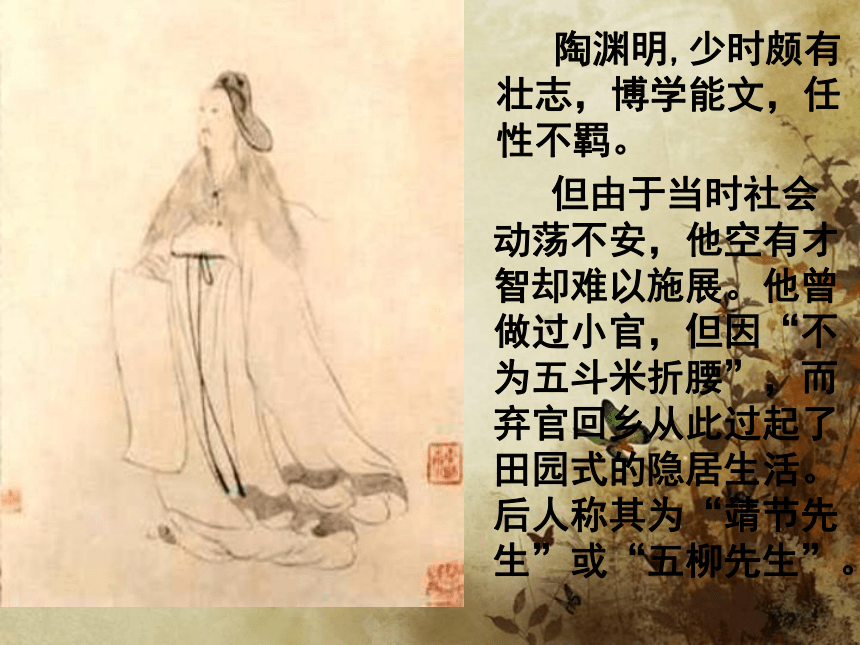 陶渊明,少时颇有
壮志，博学能文，任
性不羁。
但由于当时社会
动荡不安，他空有才
智却难以施展。他曾
做过小官，但因“不
为五斗米折腰”，而
弃官回乡从此过起了
田园式的隐居生活。
后人称其为“靖节先
生”或“五柳先生”。